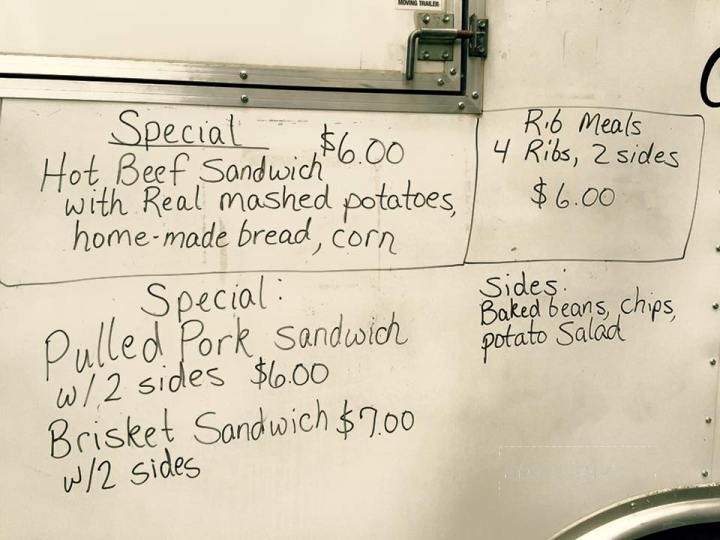 MOVING TRAILER
Special $6.00
Hot Beef Sandwich
with Real mashed potatoes,
home-made bread, corn
Rib Meals
4 Ribs, 2 sides
$6.00
Special:
Pulled Pork sandwich
w/2 sides $6.00
Brisket Sandwich $7.00
w/2 sides
Sides:
Baked beans, chips,
potato Salad